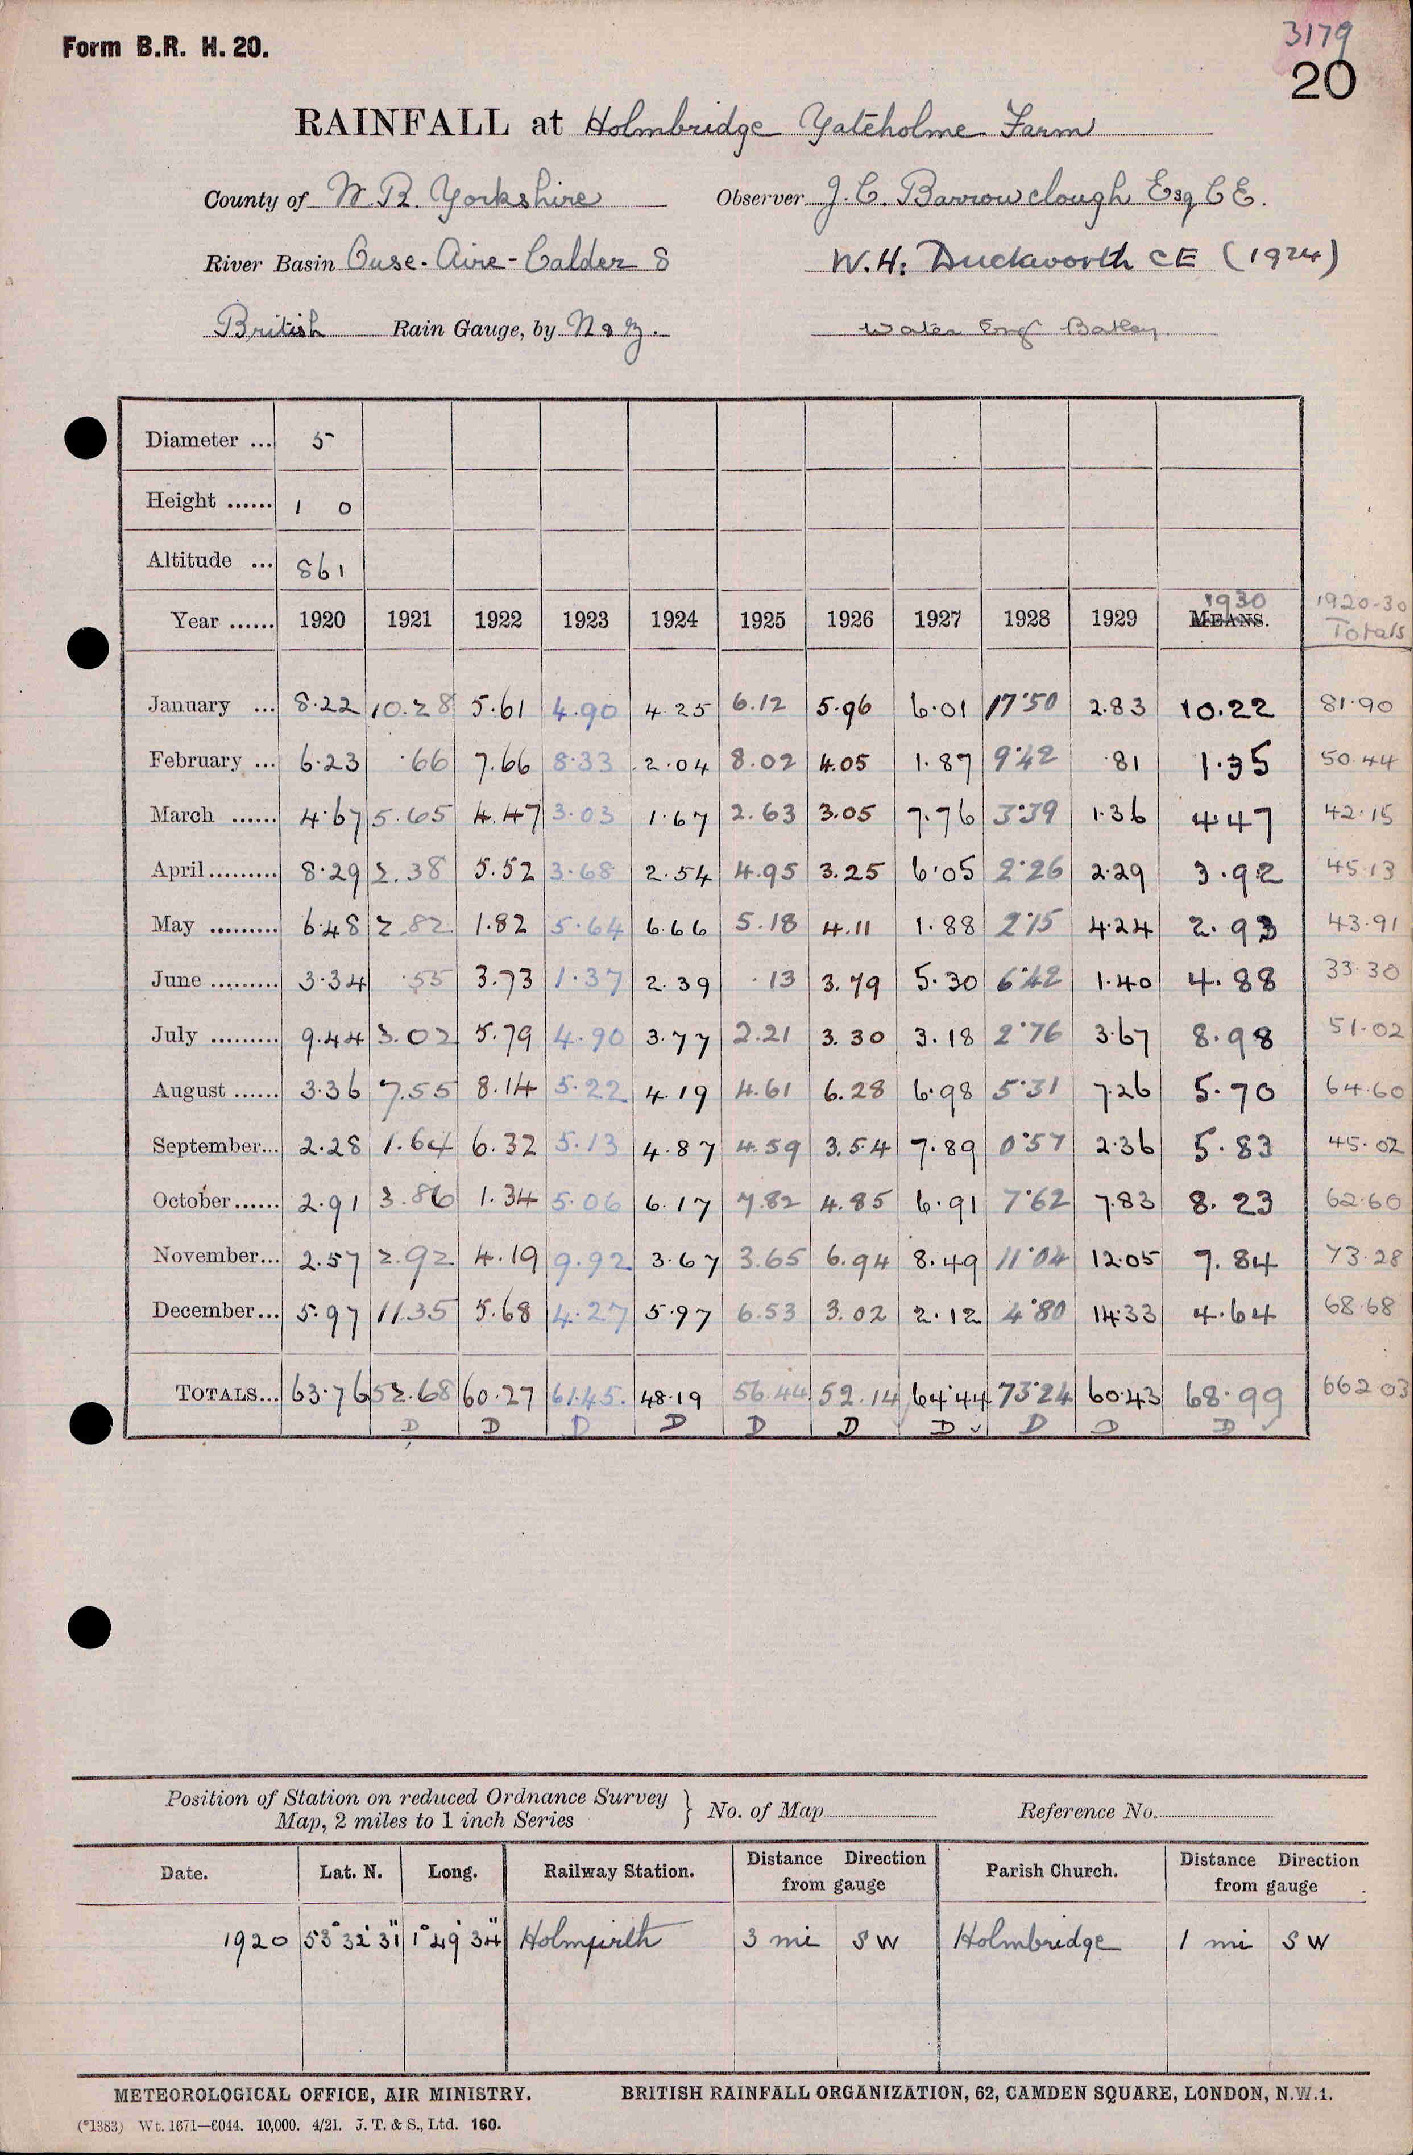 3179
Form B.R. H. 20.
20
RAINFALL at Holmbridge Yateholme Farm
County of W R. Yorkshire Observer J. C. Barrowclough Esq C E.
River Basin Ouse - Aire - Calder 8 W. H. Duckworth CE (1924)
British Rain Gauge, by N & Z. Water Eng Batley
Diameter ... 5
Height ...... 1 0
Altitude ... 861
1930 1920-30
Year ...... 1920 1921 1922 1923 1924 1925 1926 1927 1928 1929 MEANS. Totals
January ... 8.22 10.28 5.61 4.90 4.25 6.12 5.96 6.01 17.50 2.83 10.22 81.90
February ... 6.23 .66 7.66 8.33 2.04 8.02 4.05 1.87 9.42 .81 1.35 50.44
March ...... 4.67 5.65 4.47 3.03 1.67 2.63 3.05 7.76 3.39 1.36 4.47 42.15
April ......... 8.29 2.38 5.52 3.68 2.54 4.95 3.25 6.05 2.26 2.29 3.92 45.13
May ......... 6.48 2.82 1.82 5.64 6.66 5.18 4.11 1.88 2.15 4.24 2.93 43.91
June ......... 3.34 .55 3.73 1.37 2.39 .13 3.79 5.30 6.42 1.40 4.88 33.30
July ......... 9.44 3.02 5.79 4.90 3.77 2.21 3.30 3.18 2.76 3.67 8.98 51.02
August ...... 3.36 7.55 8.14 5.22 4.19 4.61 6.28 6.98 5.31 7.26 5.70 64.60
September... 2.28 1.64 6.32 5.13 4.87 4.59 3.54 7.89 0.57 2.36 5.83 45.02
October...... 2.91 3.86 1.34 5.06 6.17 7.82 4.85 6.91 7.62 7.83 8.23 62.60
November... 2.57 2.92 4.19 9.92 3.67 3.65 6.94 8.49 11.04 12.05 7.84 73.28
December... 5.97 11.35 5.68 4.27 5.97 6.53 3.02 2.12 4.80 14.33 4.64 68.68
TOTALS... 63.76 52.68 60.27 61.45 48.19 56.44 52.14 64.44 73.24 60.43 68.99 662.03
D D D D D D D D D D
Position of Station on reduced Ordnance Survey Map, 2 miles to 1 inch Series } No. of Map Reference No.
Date. Lat. N. Long. Railway Station. Distance Direction from gauge Parish Church. Distance Direction from gauge
1920 53° 32' 31" 1° 49' 34" Holmfirth 3 mi SW Holmbridge 1 mi SW
METEOROLOGICAL OFFICE, AIR MINISTRY. BRITISH RAINFALL ORGANIZATION, 62, CAMDEN SQUARE, LONDON, N.W.1.
(*1383) Wt. 1671—6044. 10,000. 4/21. J. T. & S., Ltd. 160.